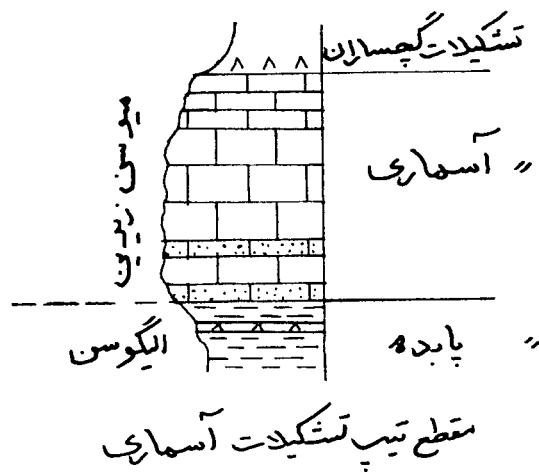 تشکیلات گچساران
〃 آسماری
میوسن زیرین
الیگوسن
〃 پابده
مقطع تیپ تشکیلات آسماری